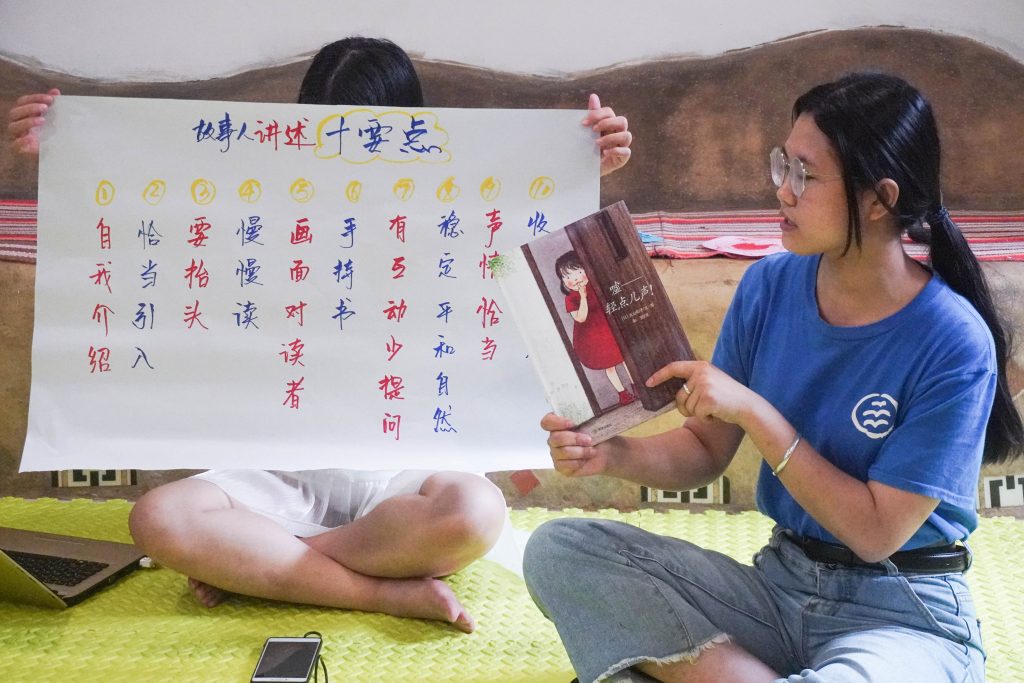 故事人讲述十要点
① 自我介绍
② 恰当引入
③ 要抬头
④ 慢慢读
⑤ 画面对读者
⑥ 手持书
⑦ 有互动少提问
⑧ 稳定平和自然
⑨ 声情恰当
⑩ 收
嘘
轻点儿声！